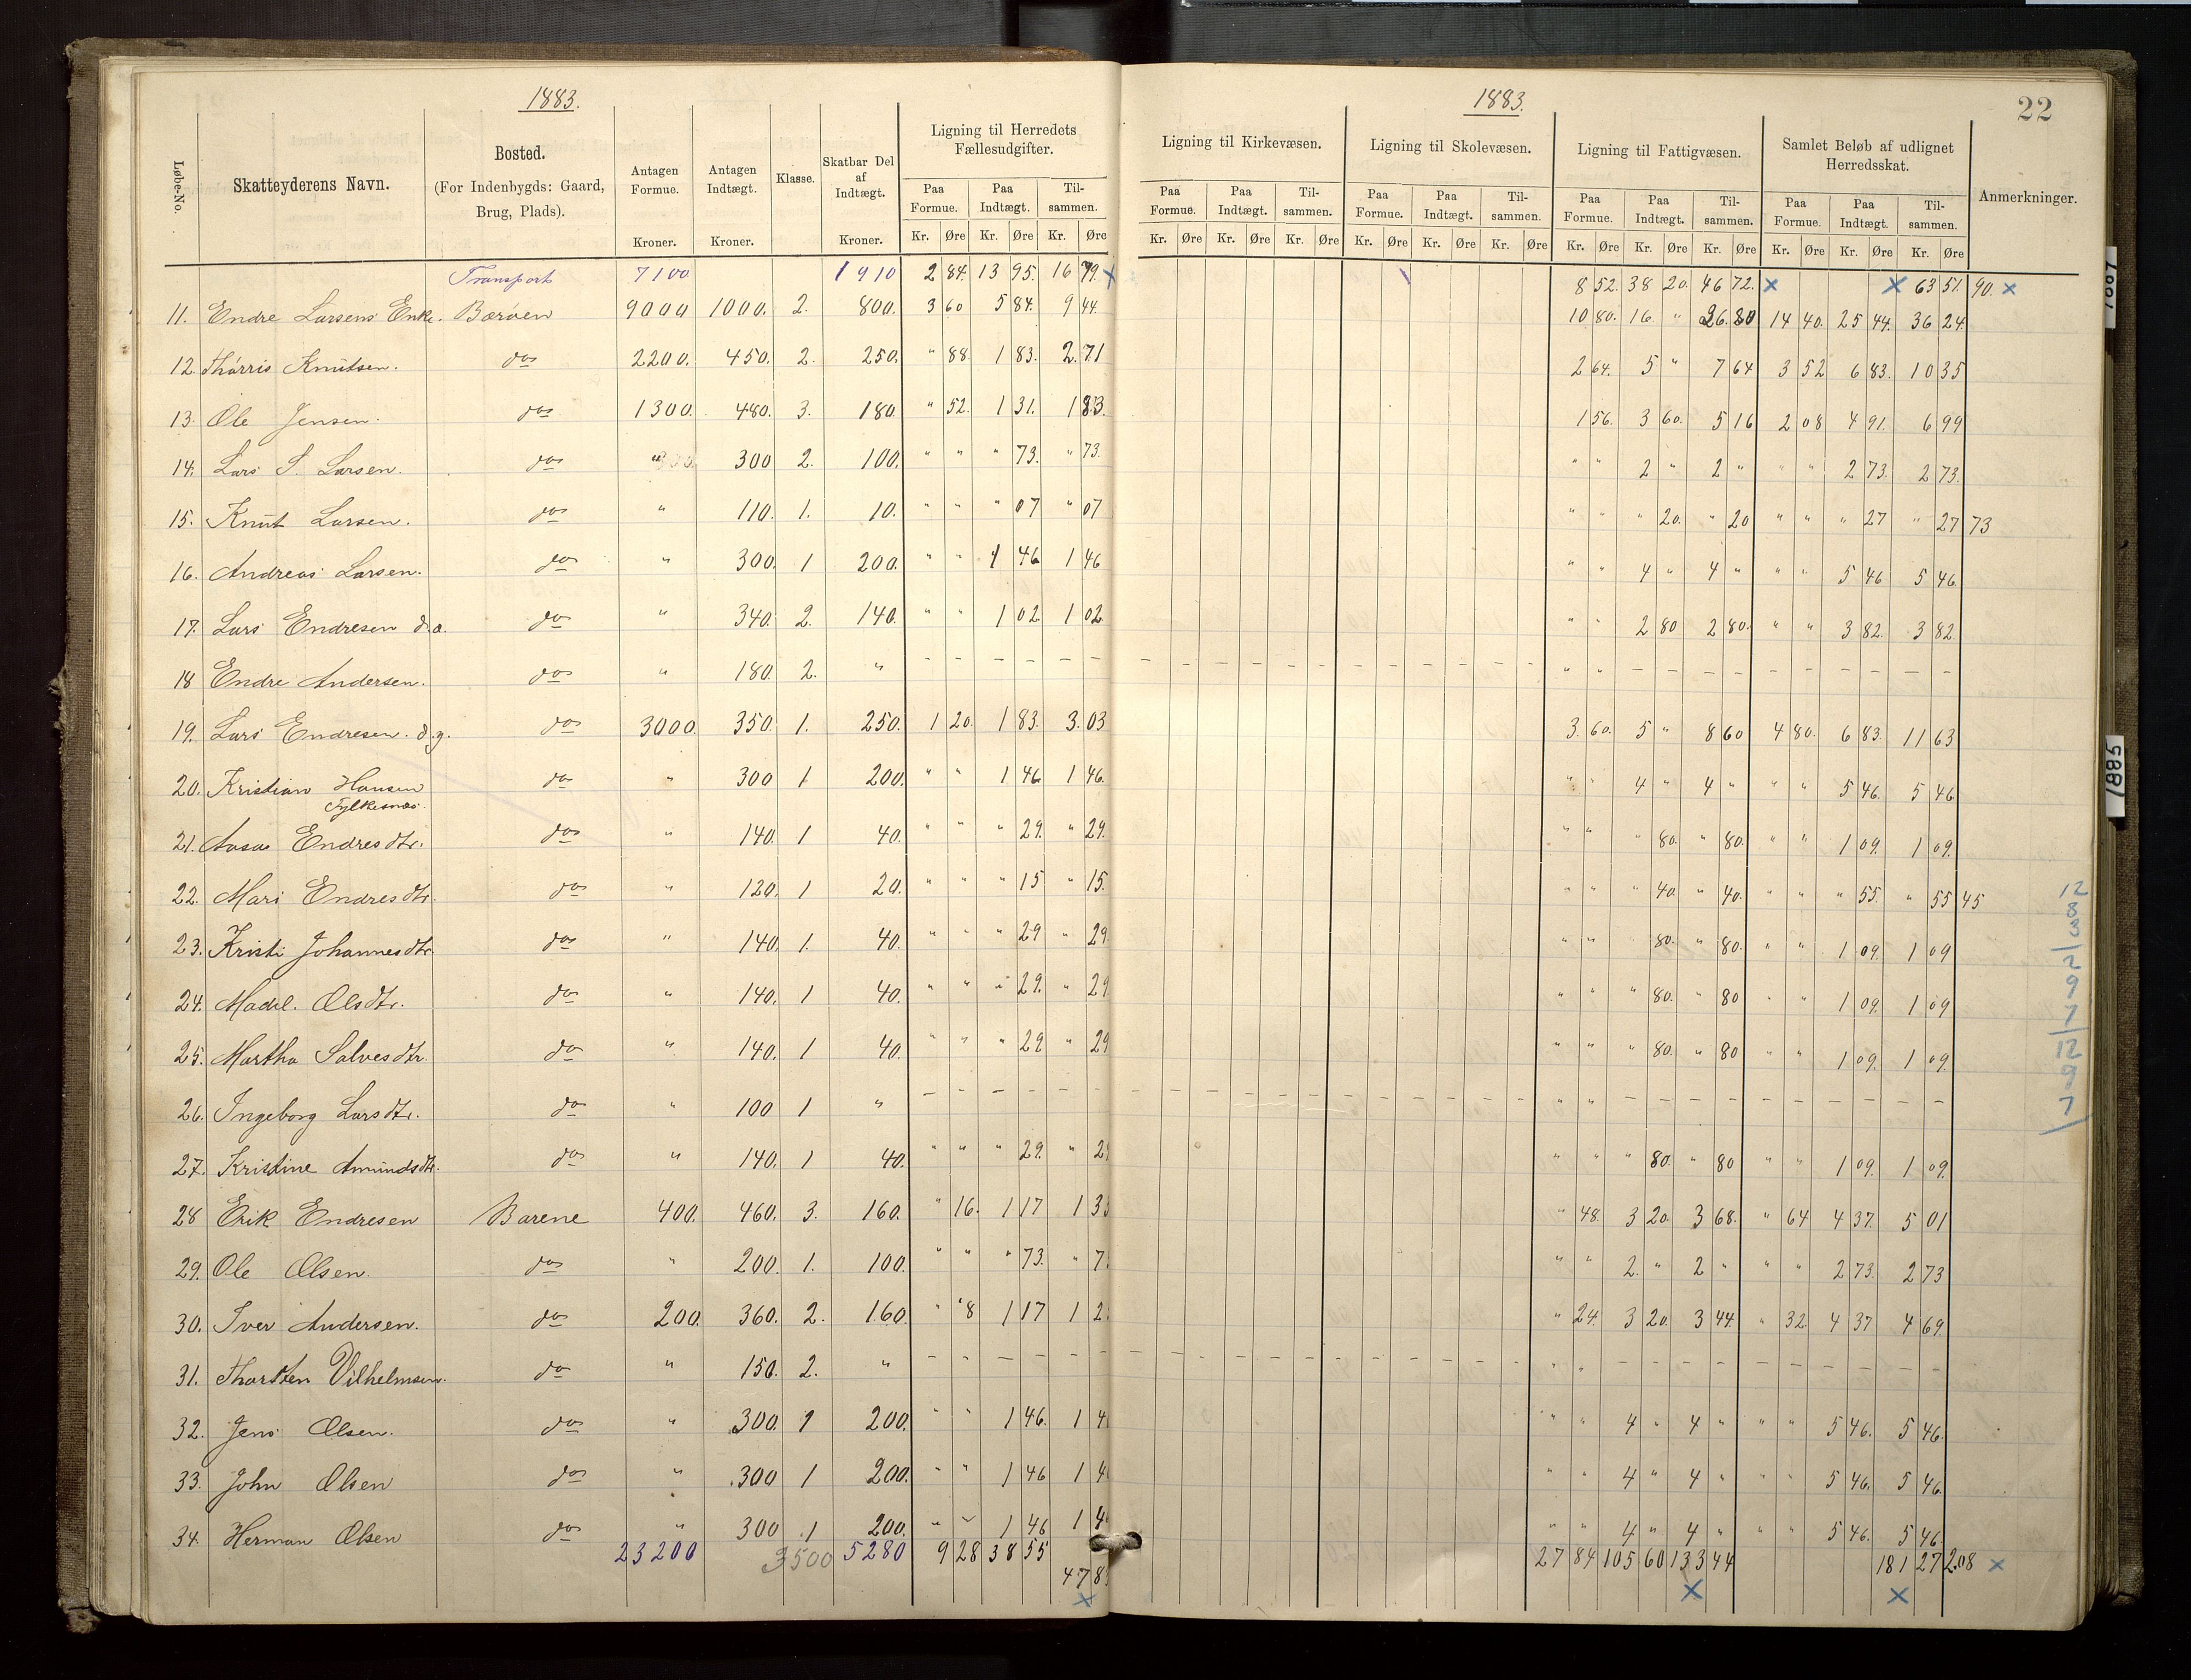 1883. 1883. 22
Løbe-No. Skatteyderens Navn. Bosted. (For Indenbygds: Gaard, Brug, Plads). Antagen Formue. Kroner. Antagen Indtægt. Kroner. Klasse. Skatbar Del af Indtægt. Kroner. Ligning til Herredets Fællesudgifter. Paa Formue. Kr. Øre Paa Indtægt. Kr. Øre Til-sammen. Kr. Øre Ligning til Kirkevæsen. Paa Formue. Kr. Øre Paa Indtægt. Kr. Øre Til-sammen. Kr. Øre Ligning til Skolevæsen. Paa Formue. Kr. Øre Paa Indtægt. Kr. Øre Til-sammen. Kr. Øre Ligning til Fattigvæsen. Paa Formue. Kr. Øre Paa Indtægt. Kr. Øre Til-sammen. Kr. Øre Samlet Beløb af udlignet Herredsskat. Paa Formue. Kr. Øre Paa Indtægt. Kr. Øre Til-sammen. Kr. Øre Anmerkninger.
Transport 7100 1910 2 84. 13 95. 16 79. x 8 52. 38 20. 46 72. x x 63 51. 90. x
11. Endre Larsens Enke. Børøen 9000 1000. 2. 800. 3 60 5 84. 9 44. 10 80. 16 " 26. 80 14 40. 25 44. 36 24.
12. Thørris Knutsen. do 2200. 450. 2. 250. " 88. 1 83. 2. 71 2 64. 5 " 7 64 3 52 6 83. 10 35
13. Ole Jensen. do 1300. 480. 3. 180. " 52. 1 31. 1 83. 1 56. 3 60. 5 16 2 08 4 91. 6 99
14. Lars S. Larsen. do " 300 2. 100. " " " 73. " 73. " " 2 " 2 " " " 2 73. 2 73.
15. Knut Larsen. do " 110. 1. 10. " " " 07 " 07 " " " 20. " 20 " " " 27 " 27 73
16. Andreas Larsen. do " 300. 1 200. " " 1 46 1 46 " " 4 " 4 " " " 5 46 5 46.
17. Lars Endresen d.æ. do " 340. 2. 140. " " 1 02 1 02 " " 2 80 2 80. " " 3 82. 3 82.
18 Endre Andersen. do " 180. 2. " – – – – – – – – – – – – – – – – – – " " – – – – – – – – – –
19. Lars Endresen. d.y. do 3000. 350. 1. 250. 1 20. 1 83. 3. 03 3. 60. 5 " 8 60 4 80. 6 83. 11 63
20. Kristian Hansen do " 300 1 200. " " 1 46 1 46. " " 4 " 4 " " " 5 46. 5 46
Fylkesnæs.
21. Aasa Endresdtr. do " 140. 1 40. " " " 29. " 29. " " " 80. " 80. " " 1 09. 1 09.
22. Mari Endresdtr. do " 120. 1 20. " " " 15 " 15. " " " 40. " 40. " " " 55. " 55 45
23. Kristi Johannesdtr. do " 140. 1. 40. " " " 29 " 29. " " 80. " 80. " " 1 09. 1 09
24. Madel. Olsdtr. do " 140. 1 40. " " " 29. " 29 " " " 80. " 80 " " 1 09. 1 09
25. Martha Salvesdtr. do " 140. 1 40. " " " 29 " 29 " " " 80. " 80 " " 1 09. 1 09.
26. Ingeborg Larsdtr. do " 100 1 " – – – – – – – – – – – – – – – – – – " " – – – – – – – – – –
27. Kristine Amundsdtr. do " 140. 1 40. " " " 29. " 2 " " " 80. " 80 " " 1 09. 1 09.
28 Erik Endresen Barene 400. 460. 3. 160. " 16. 1 17 1 3 " 48. 3 20. 3 68. " 64 4 37. 5 01
29. Ole Olsen. do " 200. 1. 100. " " " 73. " 7 " " 2. " 2 " " " 2 73. 2 73
30. Iver Andersen. do 200. 360. 2. 160. " 8 1 17 1 2 " 24. 3 20. 3 44. " 32 4 37 4 69.
31. Thorsten Vilhelmsen. do " 150. 2. " – – – – – – – – – – – – – – – – – – " " – – – – – – – – – –
32. Jens Olsen. do " 300. 1 200. " " 1 46. 1 4 " " 4 " 4 " " " 5 46. 5 46.
33. John Olsen do " 300 1 200. " " 1 46 1 4 " " 4 " 4 " " " 5 46. 5 46.
34. Herman Olsen do " 300 1 200. " " 1 46 1 4 " " 4 " 4 " " " 5 46.5 46
23200 3500 5280 9 28 38 55 27 84 105 60 133 44 181 27 2.08 x
47 8 x x
x
1885